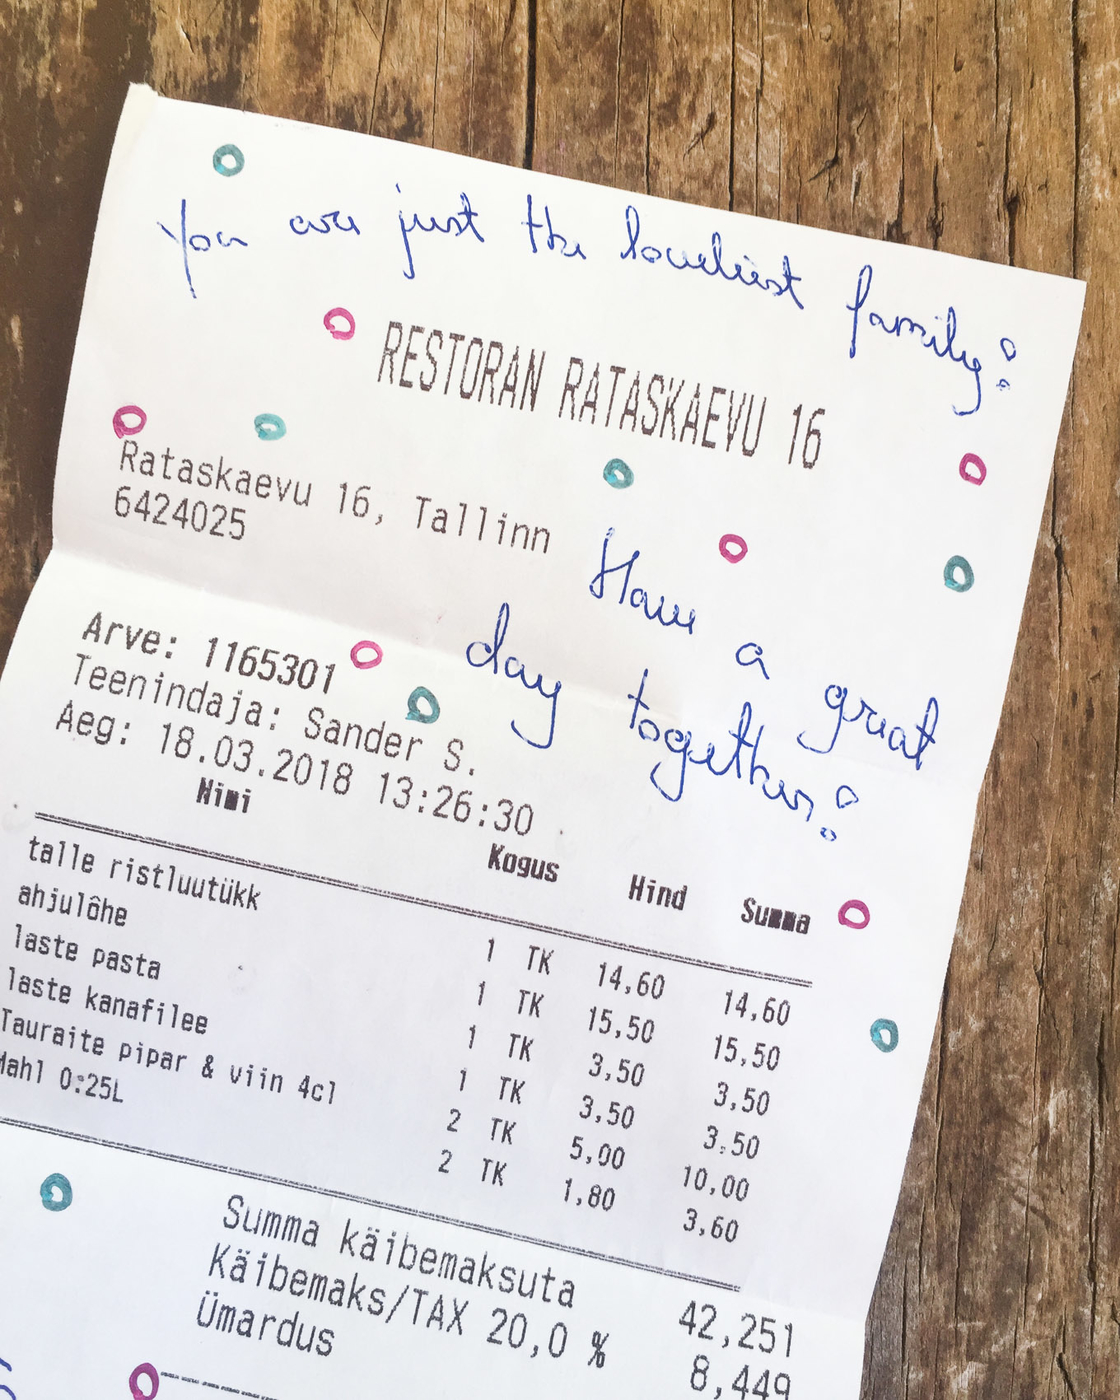 You are just the loveliest family!
RESTORAN RATASKAEVU 16
Rataskaevu 16, Tallinn
6424025
Have a great
day together!
Arve: 1165301
Teenindaja: Sander S.
Aeg: 18.03.2018 13:26:30
Nimi Kogus Hind Summa
talle ristluutükk 1 TK 14,60 14,60
ahjulõhe 1 TK 15,50 15,50
laste pasta 1 TK 3,50 3,50
laste kanafilee 1 TK 3,50 3,50
Tauraite pipar & viin 4cl 2 TK 5,00 10,00
Mahl 0:25L 2 TK 1,80 3,60
Summa käibemaksuta 42,251
Käibemaks/TAX 20,0 % 8,449
Ümardus